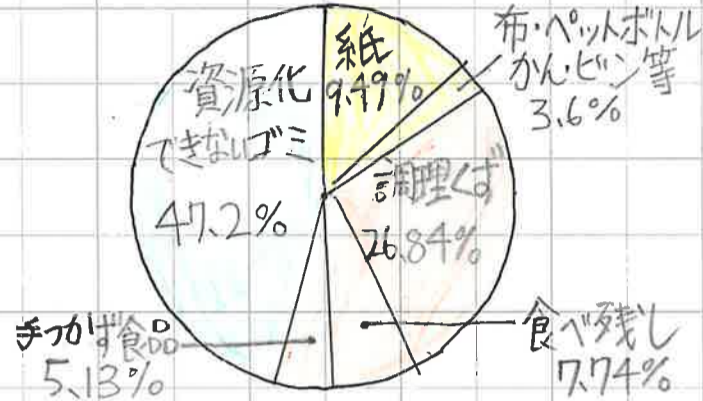 紙
9.49%
布・ペットボトル
かん・ビン等
3.6%
調理くず
26.84%
食べ残し
7.74%
手つかず食品
5.13%
資源化
できないゴミ
47.2%